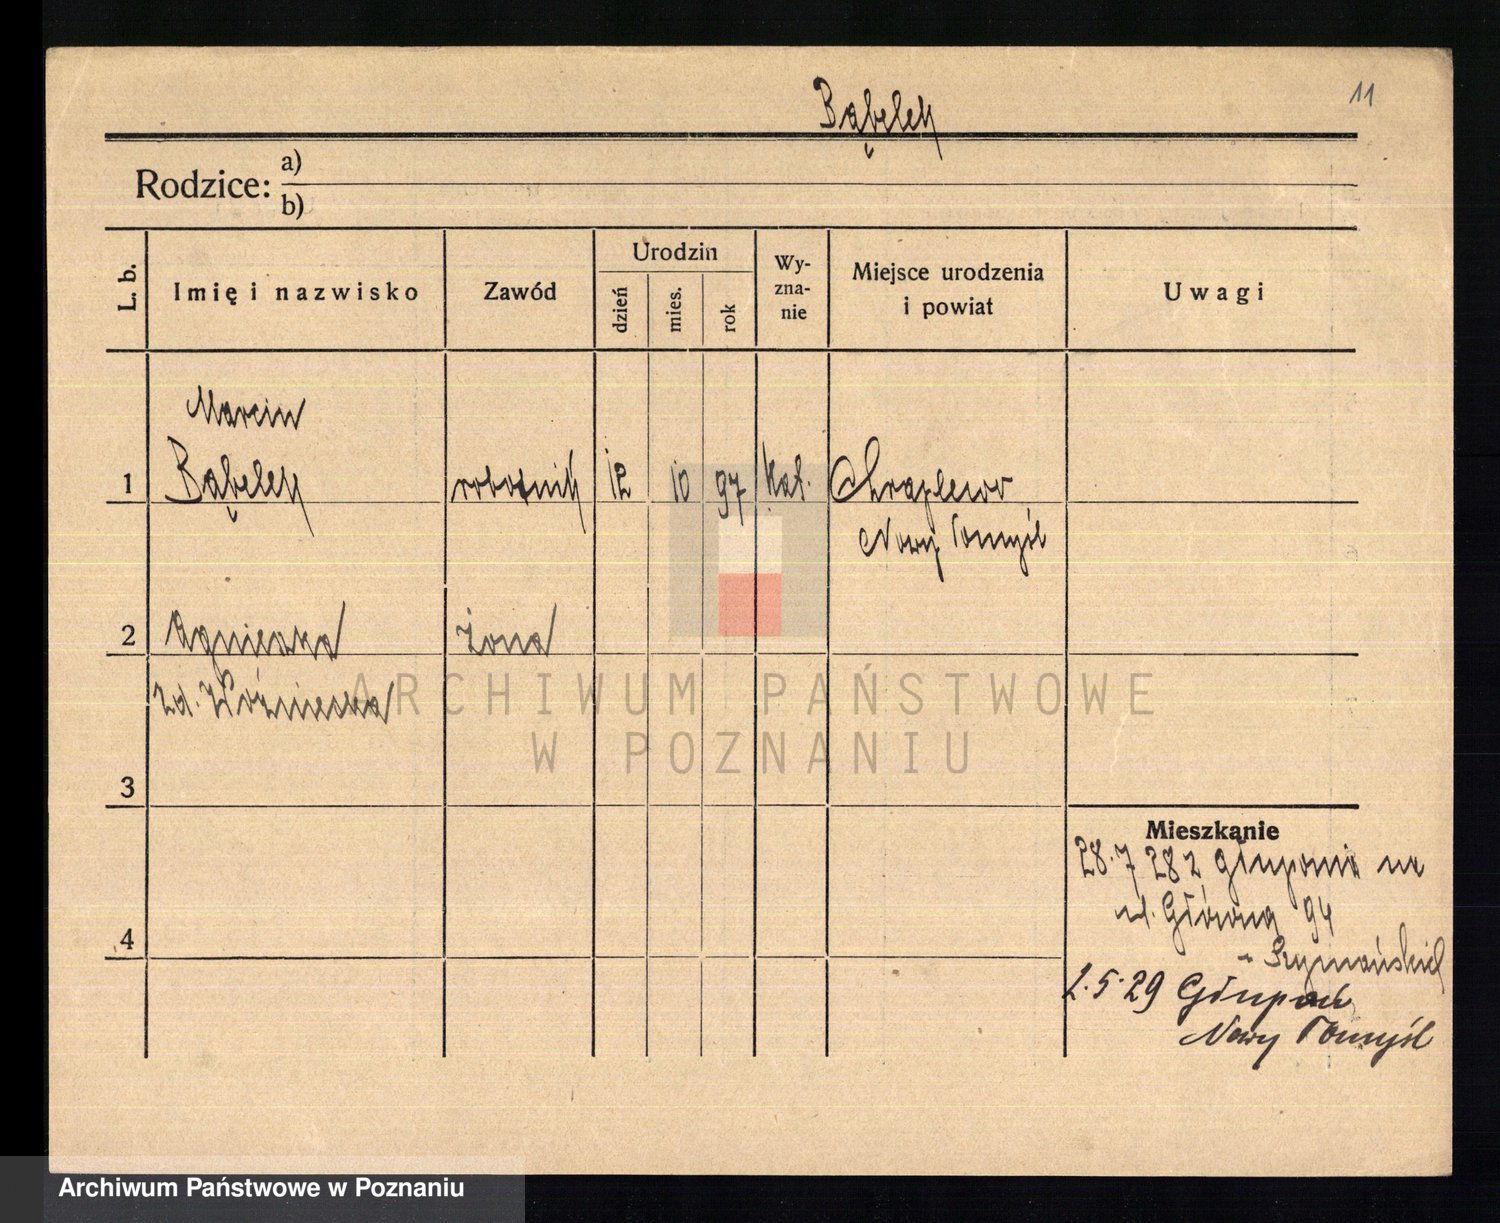 Bąbelek
11
Rodzice: a)
b)
L. b.
Imię i nazwisko
Zawód
Urodzin
dzień
mies.
rok
Wy-
zna-
nie
Miejsce urodzenia
i powiat
Uwagi
Marcin
1 Bąbelek robotnik 12 10 97 Kat. Chraplewo
Nowy Tomyśl
2 Agnieszka żona
zd. Woźniecka
3
4
Mieszkanie
28.7 28 z Głuponie na
ul. Główna 94
Szymański
2.5.29
Nowy Tomyśl
ARCHIWUM PAŃSTWOWE
W POZNANIU
Archiwum Państwowe w Poznaniu